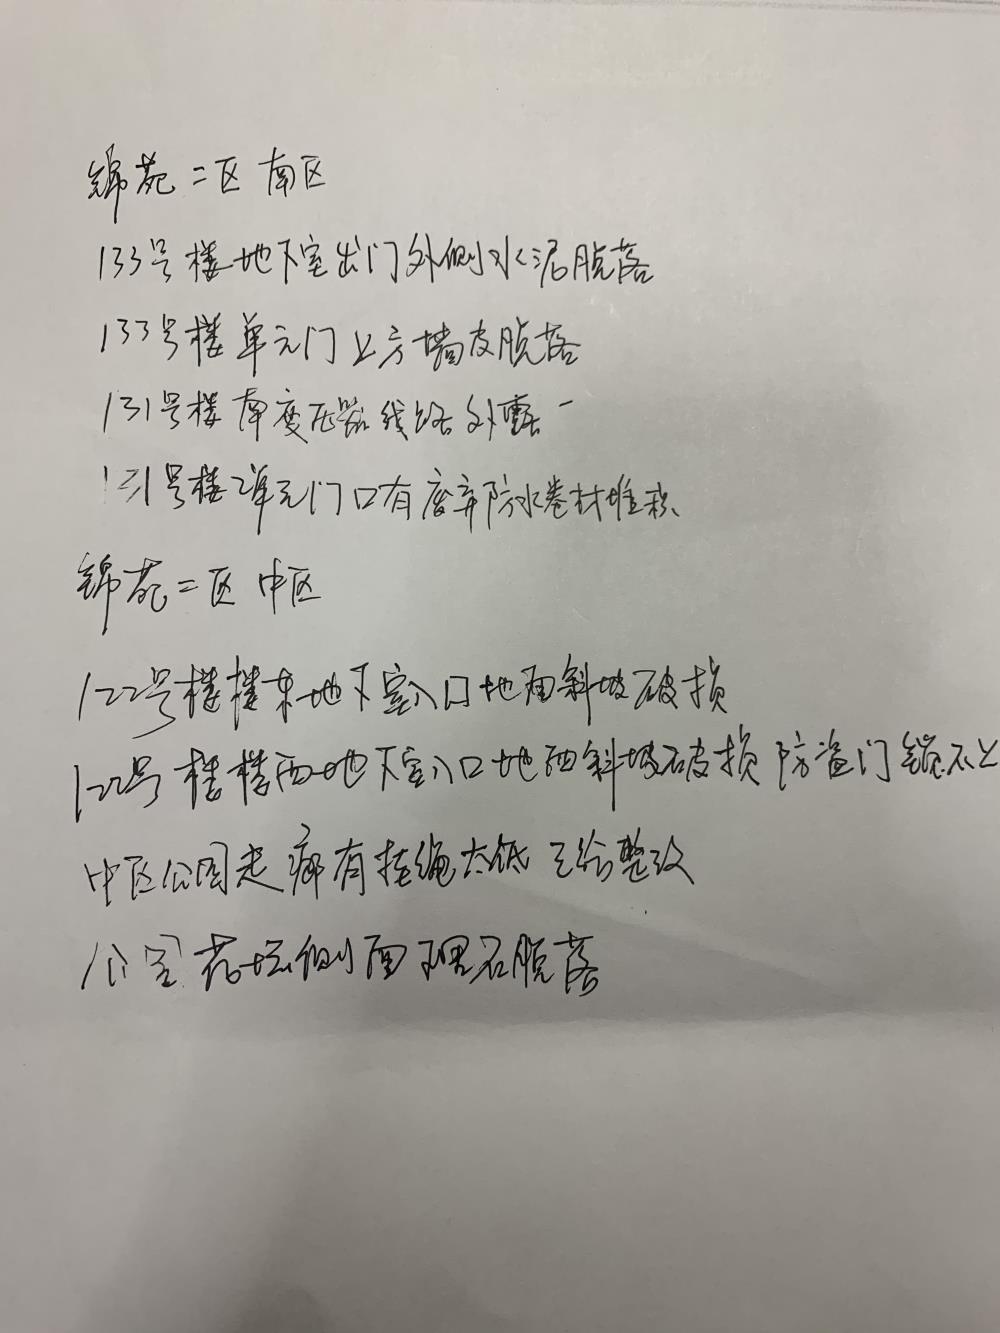 锦苑二区 南区
133号楼地下室出门外侧水泥脱落
133号楼单元门上方墙皮脱落
131号楼南变压器线路外露
131号楼2单元门口有废弃防水卷材堆积
锦苑二区 中区
122号楼楼东地下室入口地面斜坡破损
122号楼楼西地下室入口地面斜坡破损 防盗门锁不上
中区公园走廊有挂绳太低 已给整改
花坛侧面理石脱落